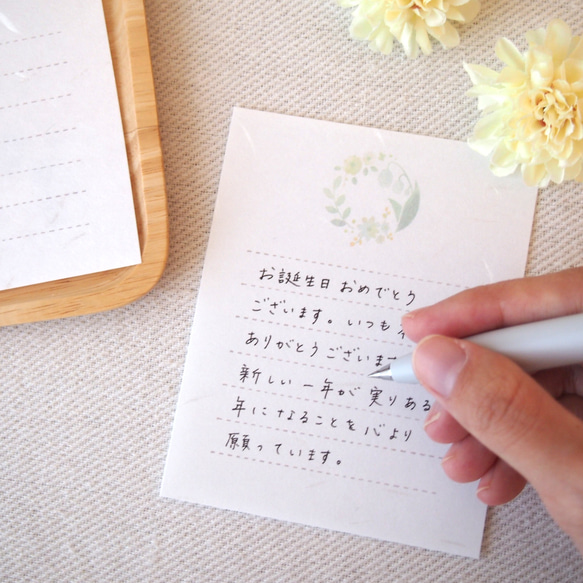 お誕生日おめでとう
ございます。いつも
ありがとうございま
新しい一年が実りある
年になることを心より
願っています。